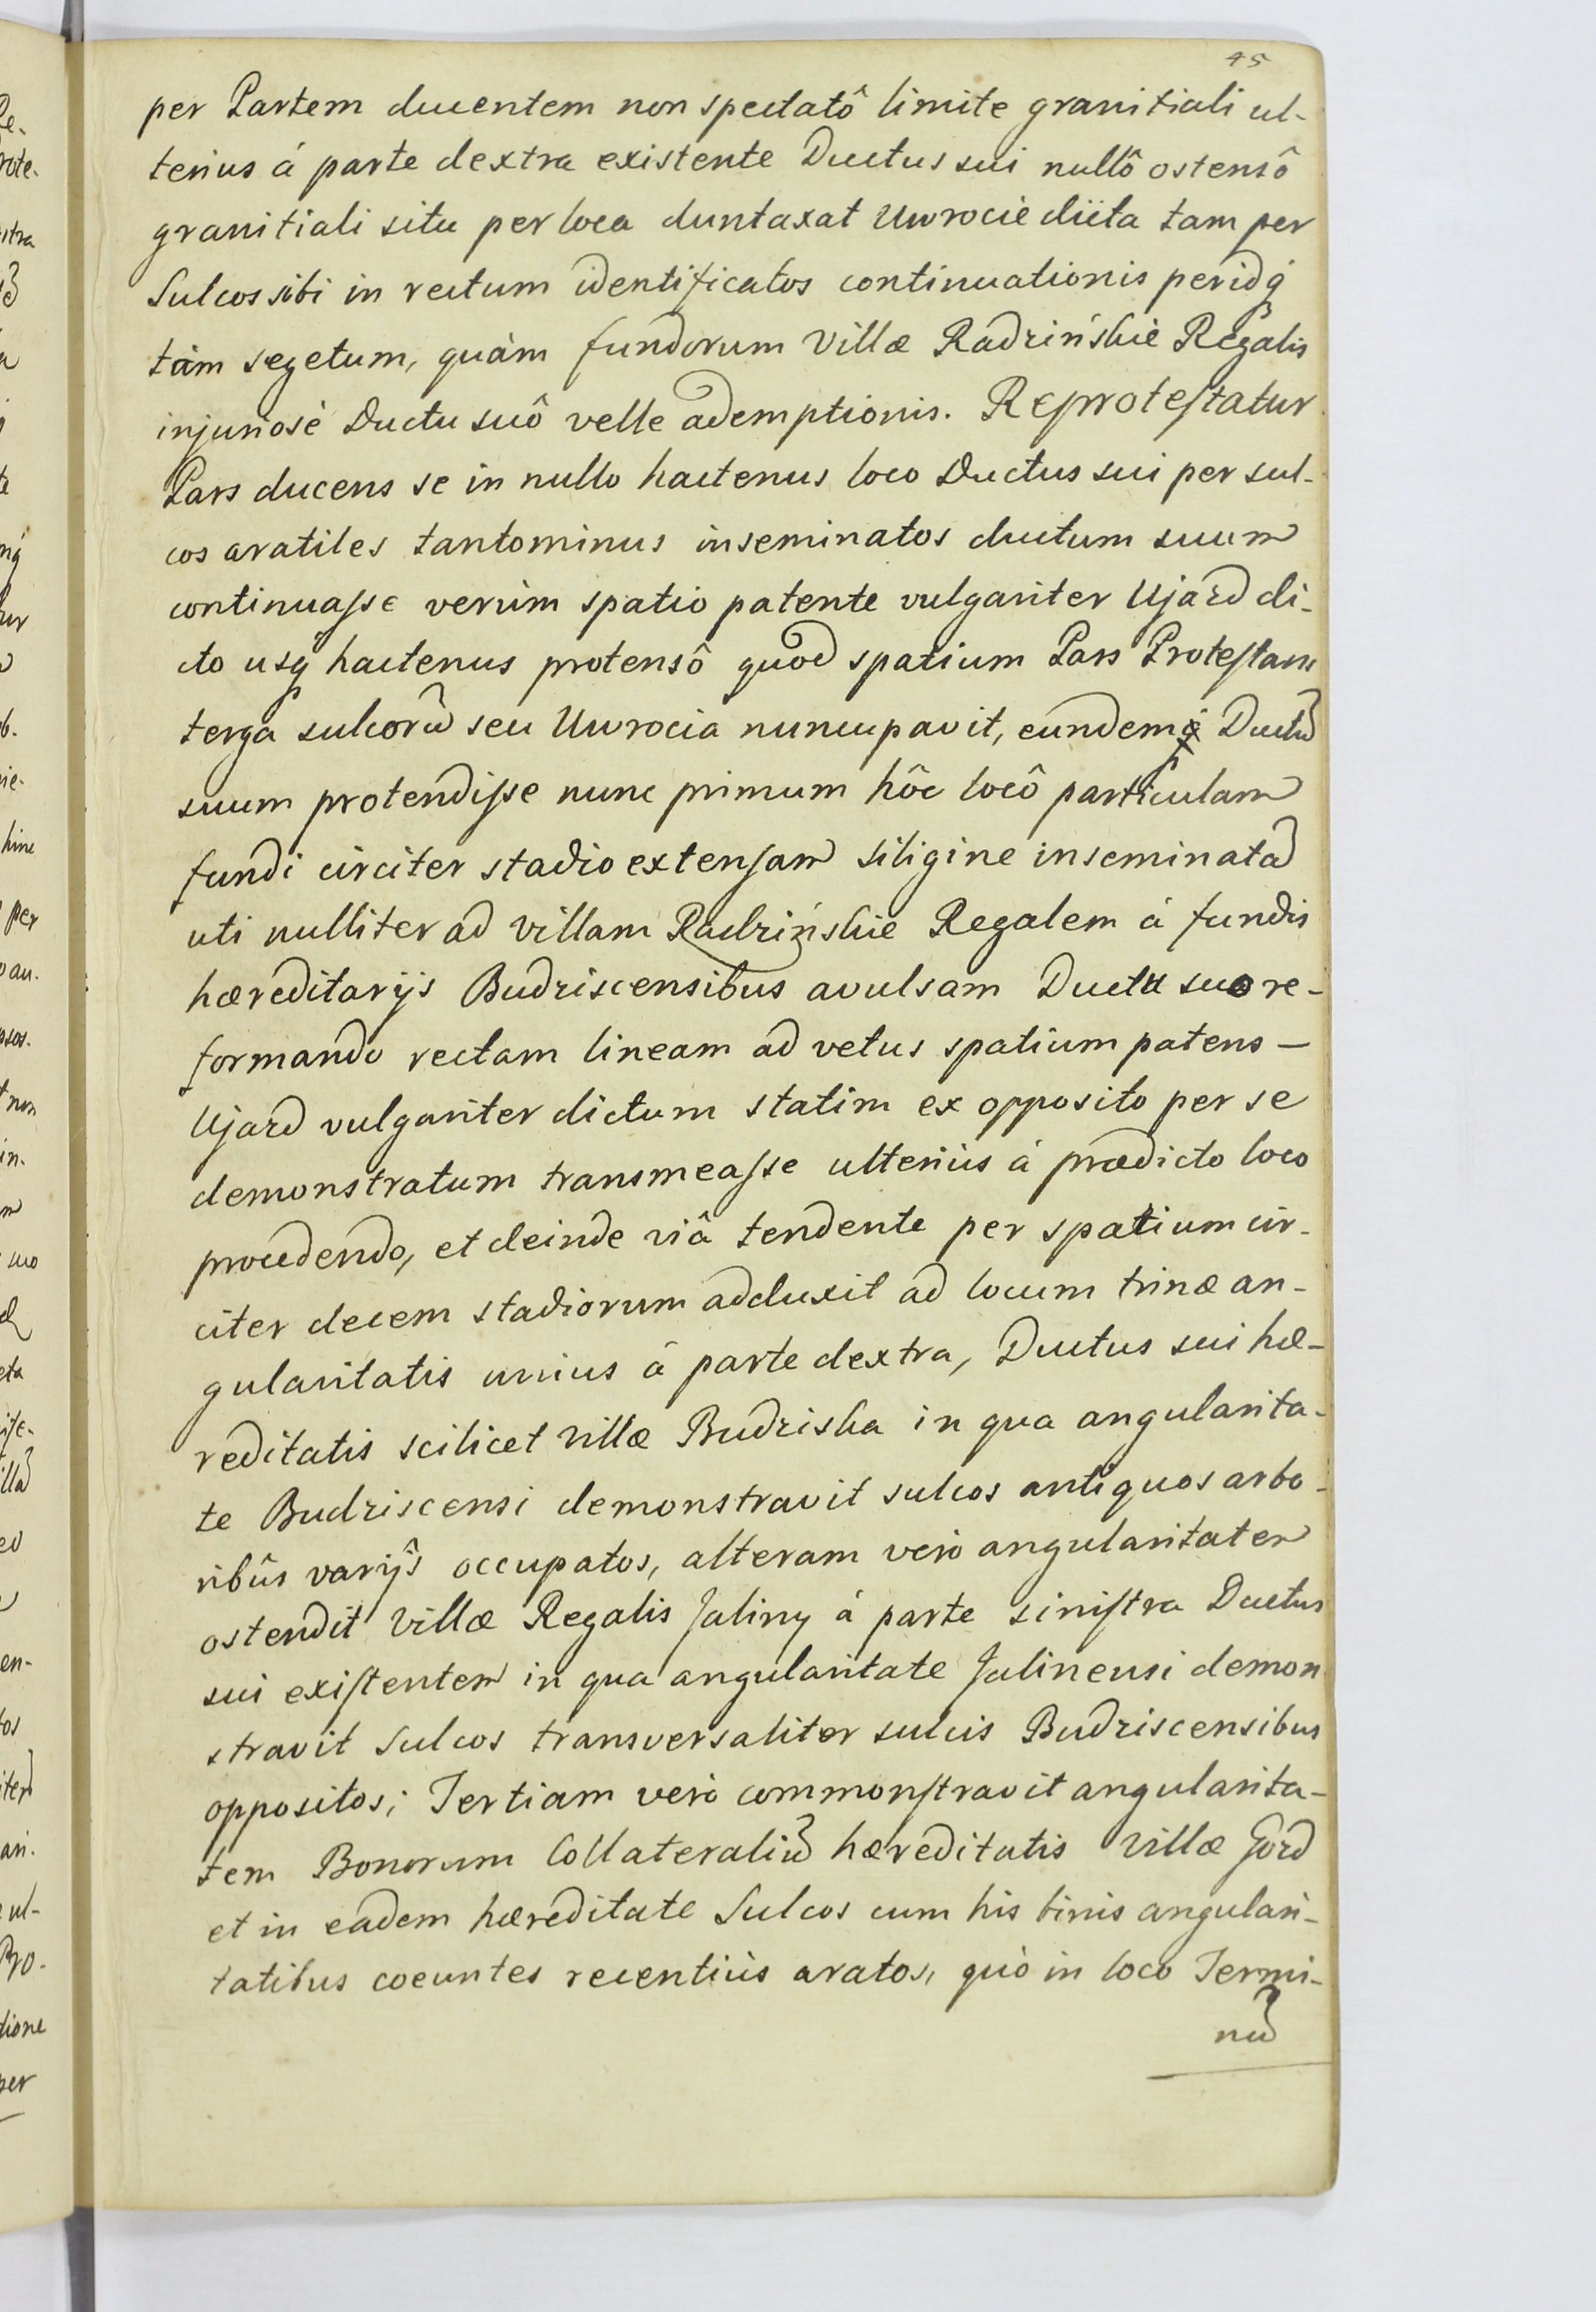 45
per Partem ducentem non spectatô limite granitiali ul-
terius á parte dextra existente Ductus sui nullô ostensô
granitiali situ per loca duntaxat Uwrocie dicta tam per
Sulcos sibi in rectum identificatos continuationis peridq́
tám segetum, quám fundorum Villæ Radzińskie Regalis
injuriosè Ductu suô velle ademptionis. Reproteſtatur
Pars ducens se in nullo hactenus loco Ductus sui per sul-
cos aratiles tantominus inseminatos ductum suum
continuaſse verùm spatio patente vulgariter Ujazd di-
cto usq́ hactenus protensô quod spatium Pars Proteſtans
terga sulcorũ seu Uwrocia nuncupavit, eundemq́ Ductũ
suum protendiſse nunc primum hôc locô particulam
fundi circiter stadio extenſam siligine inseminatã
uti nulliter ad villam Radzińskie Regalem á fundis
hæreditarijs Budziscensibus avulsam Ductu suo re-
formando rectam lineam ad vetus spatium patens —
Ujazd vulgariter dictum statim ex opposito per se
demonstratum transmeaſse ulteriùs á prædicto loco
procedendo, et deinde viâ tendente per spatium cir-
citer decem stadiorum adduxit ad locum trinæ an-
gularitatis unius á parte dextra, Ductus sui hæ-
reditatis scilicet villæ Budziska in qua angularita-
te Budziscensi demonstravit sulcos antiquos arbo-
ribûs varijs occupatos, alteram verò angularitatem
ostendit Villæ Regalis Jaliny á parte siniſtra Ductus
sui exiſtentem in qua angularitate Jalinensi demon
stravit Sulcos transversaliter sulcis Budziscensibus
oppositos; Tertiam verò commonſtravit angularita-
tem Bonorum Collateraliũ hæreditatis Villæ Gozd
et in eadem hæreditate Sulcos cum his binis angulari-
tatibus coeuntes recentiùs aratos, quò in loco Termi-
nũ